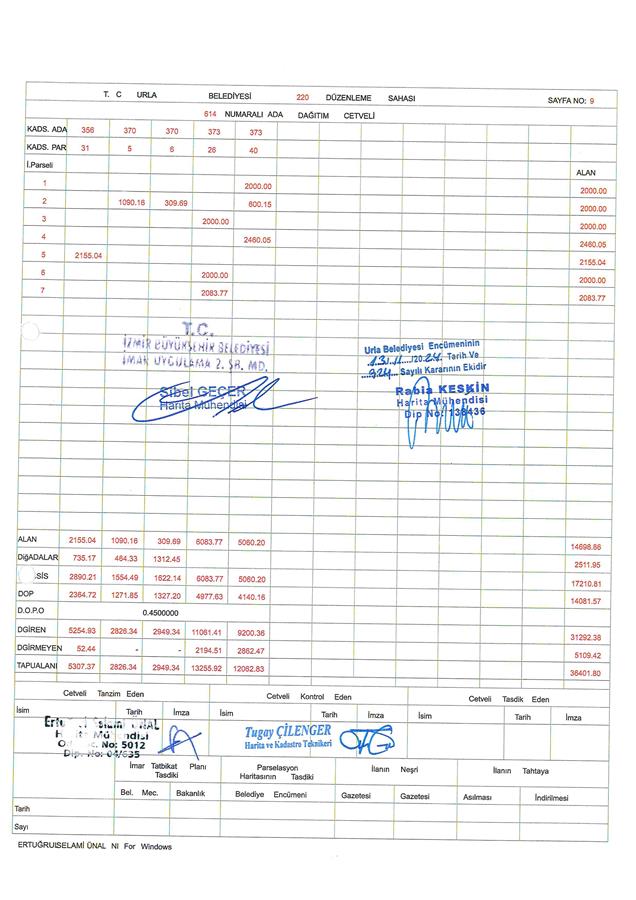 T. C URLA BELEDİYESİ 220 DÜZENLEME SAHASI SAYFA NO: 9
614 NUMARALI ADA DAĞITIM CETVELİ
KADS. ADA 356 370 370 373 373
KADS. PAR 31 5 6 26 40
İ.Parseli ALAN
1 2000.00 2000.00
2 1090.16 309.69 600.15 2000.00
3 2000.00 2000.00
4 2460.05 2460.05
5 2155.04 2155.04
6 2000.00 2000.00
7 2083.77 2083.77
T.C.
İZMİR BÜYÜKŞEHİR BELEDİYESİ
İMAR UYGULAMA 2. ŞB. MD.
Sibel GEÇER
Harita Mühendisi
Urla Belediyesi Encümeninin
13.11.2024 Tarih Ve
924 Sayılı Kararının Ekidir
Rabia KESKİN
Harita Mühendisi
Dip No: 138436
ALAN 2155.04 1090.16 309.69 6083.77 5060.20 14698.86
DiğADALAR 735.17 464.33 1312.45 2511.95
SİS 2890.21 1554.49 1622.14 6083.77 5060.20 17210.81
DOP 2364.72 1271.85 1327.20 4977.63 4140.16 14081.57
D.O.P.O 0.4500000
DGIREN 5254.93 2826.34 2949.34 11061.41 9200.36 31292.38
DGIRMEYEN 52.44 - - 2194.51 2862.47 5109.42
TAPUALANI 5307.37 2826.34 2949.34 13255.92 12062.83 36401.80
Cetveli Tanzim Eden Cetveli Kontrol Eden Cetveli Tasdik Eden
İsim Tarih İmza İsim Tarih İmza İsim Tarih İmza
ÜNAL
No: 5012
Dip. No: 04/635
Tugay ÇİLENGER
Harita ve Kadastro Teknikeri
İmar Tatbikat Planı Tasdiki Parselasyon Haritasının Tasdiki İlanın Neşri İlanın Tahtaya
Bel. Mec. Bakanlık Belediye Encümeni Gazetesi Gazetesi Asılması İndirilmesi
Tarih
Sayı
ERTUĞRUlSELAMİ ÜNAL NI For Windows